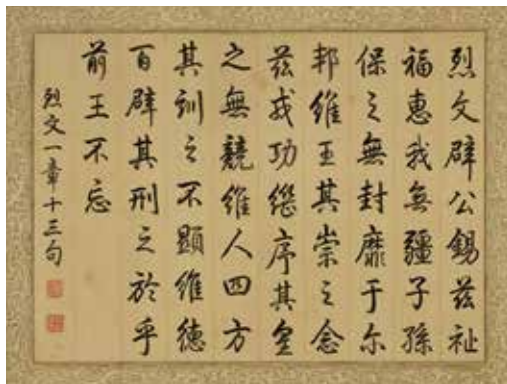 烈文辟公錫茲祉
福惠我無疆子孫
保之無封靡于尔
邦維王其崇之念
茲戎功繼序其皇
之無競維人四方
其訓之不顯維德
百辟其刑之於乎
前王不忘
烈文一章十三句